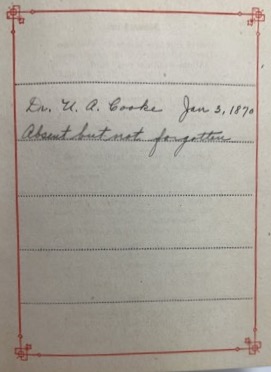 Dr. U. A. Cooke Jan 3, 1870
Absent but not forgotten